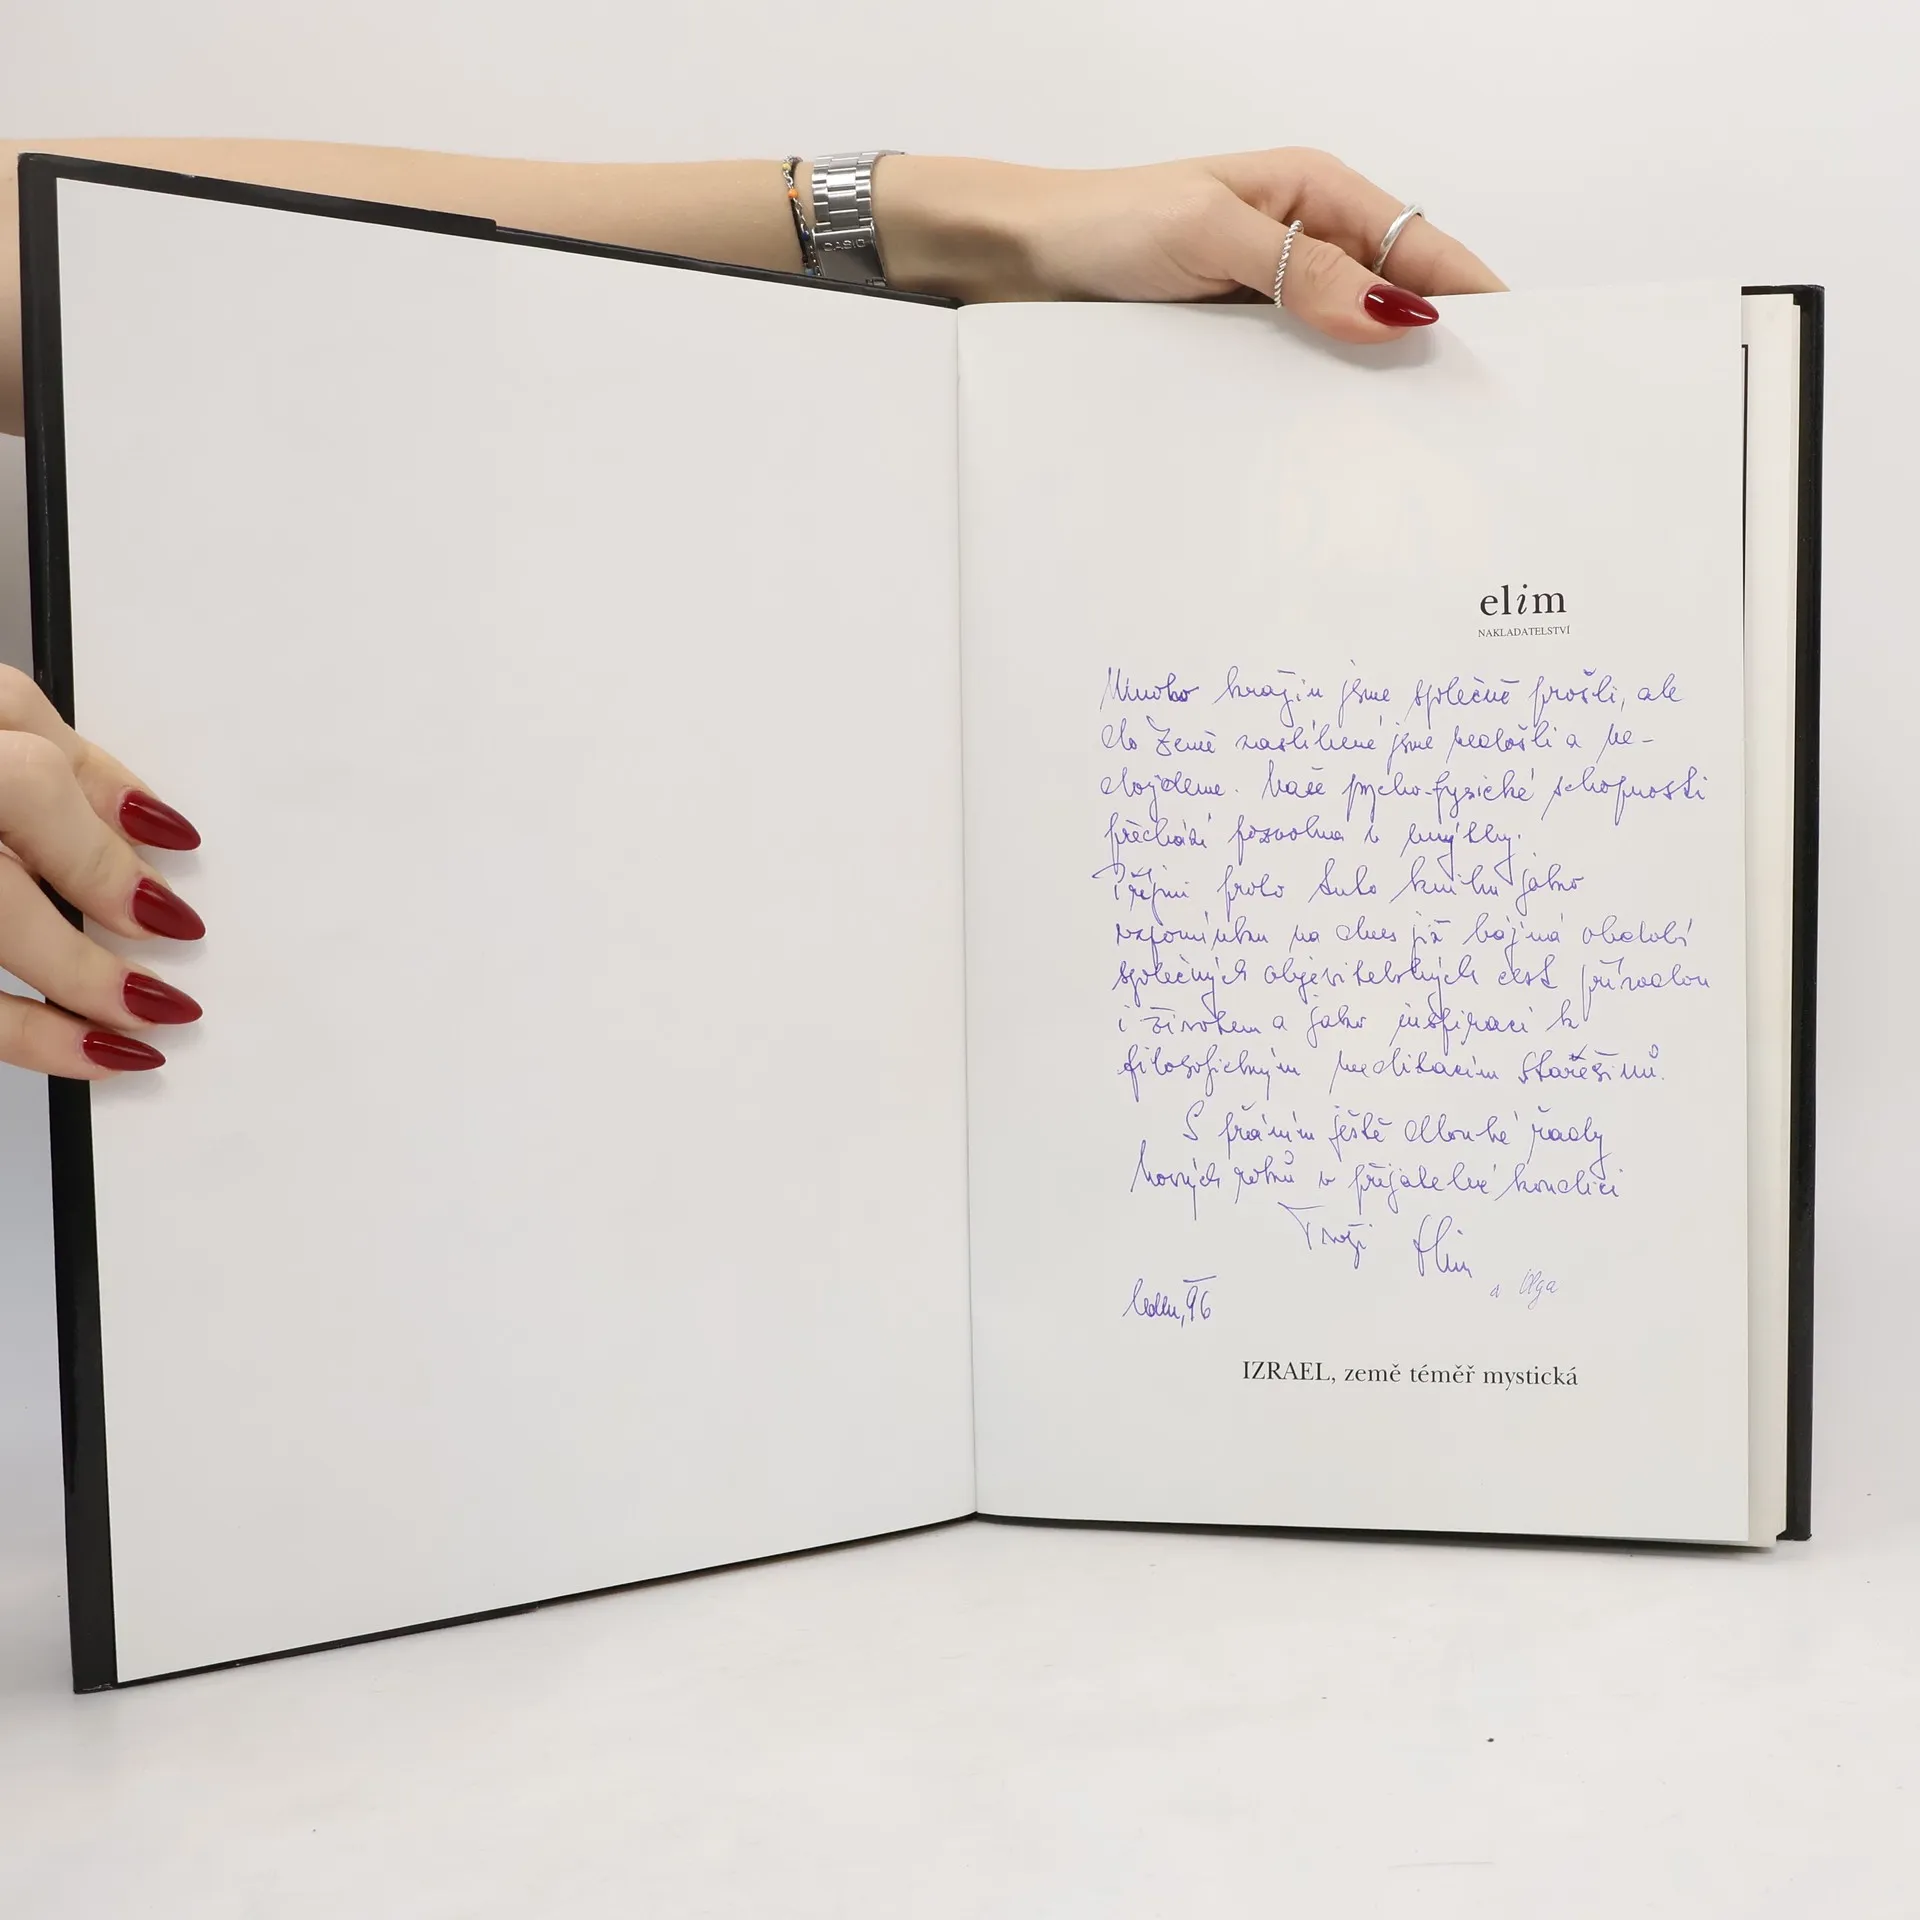 CASIO
elim
NAKLADATELSTVÍ
Mnoho krajin jsme společně prošli, ale
do Země zaslíbené jsme nedošli a ne-
dojdeme. Naše psycho-fyzické schopnosti
přechází pozvolna v
Přijmi proto tuto knihu jako
vzpomínku na dnes již bájná období
společných objevitelských cest přírodou
i životem a jako inspiraci k
filosofickým meditacím stařešinů.
S přáním ještě dlouhé řady
nových roků v přijatelné kondici
Tvoji
a Olga
leden, 96
IZRAEL, země téměř mystická